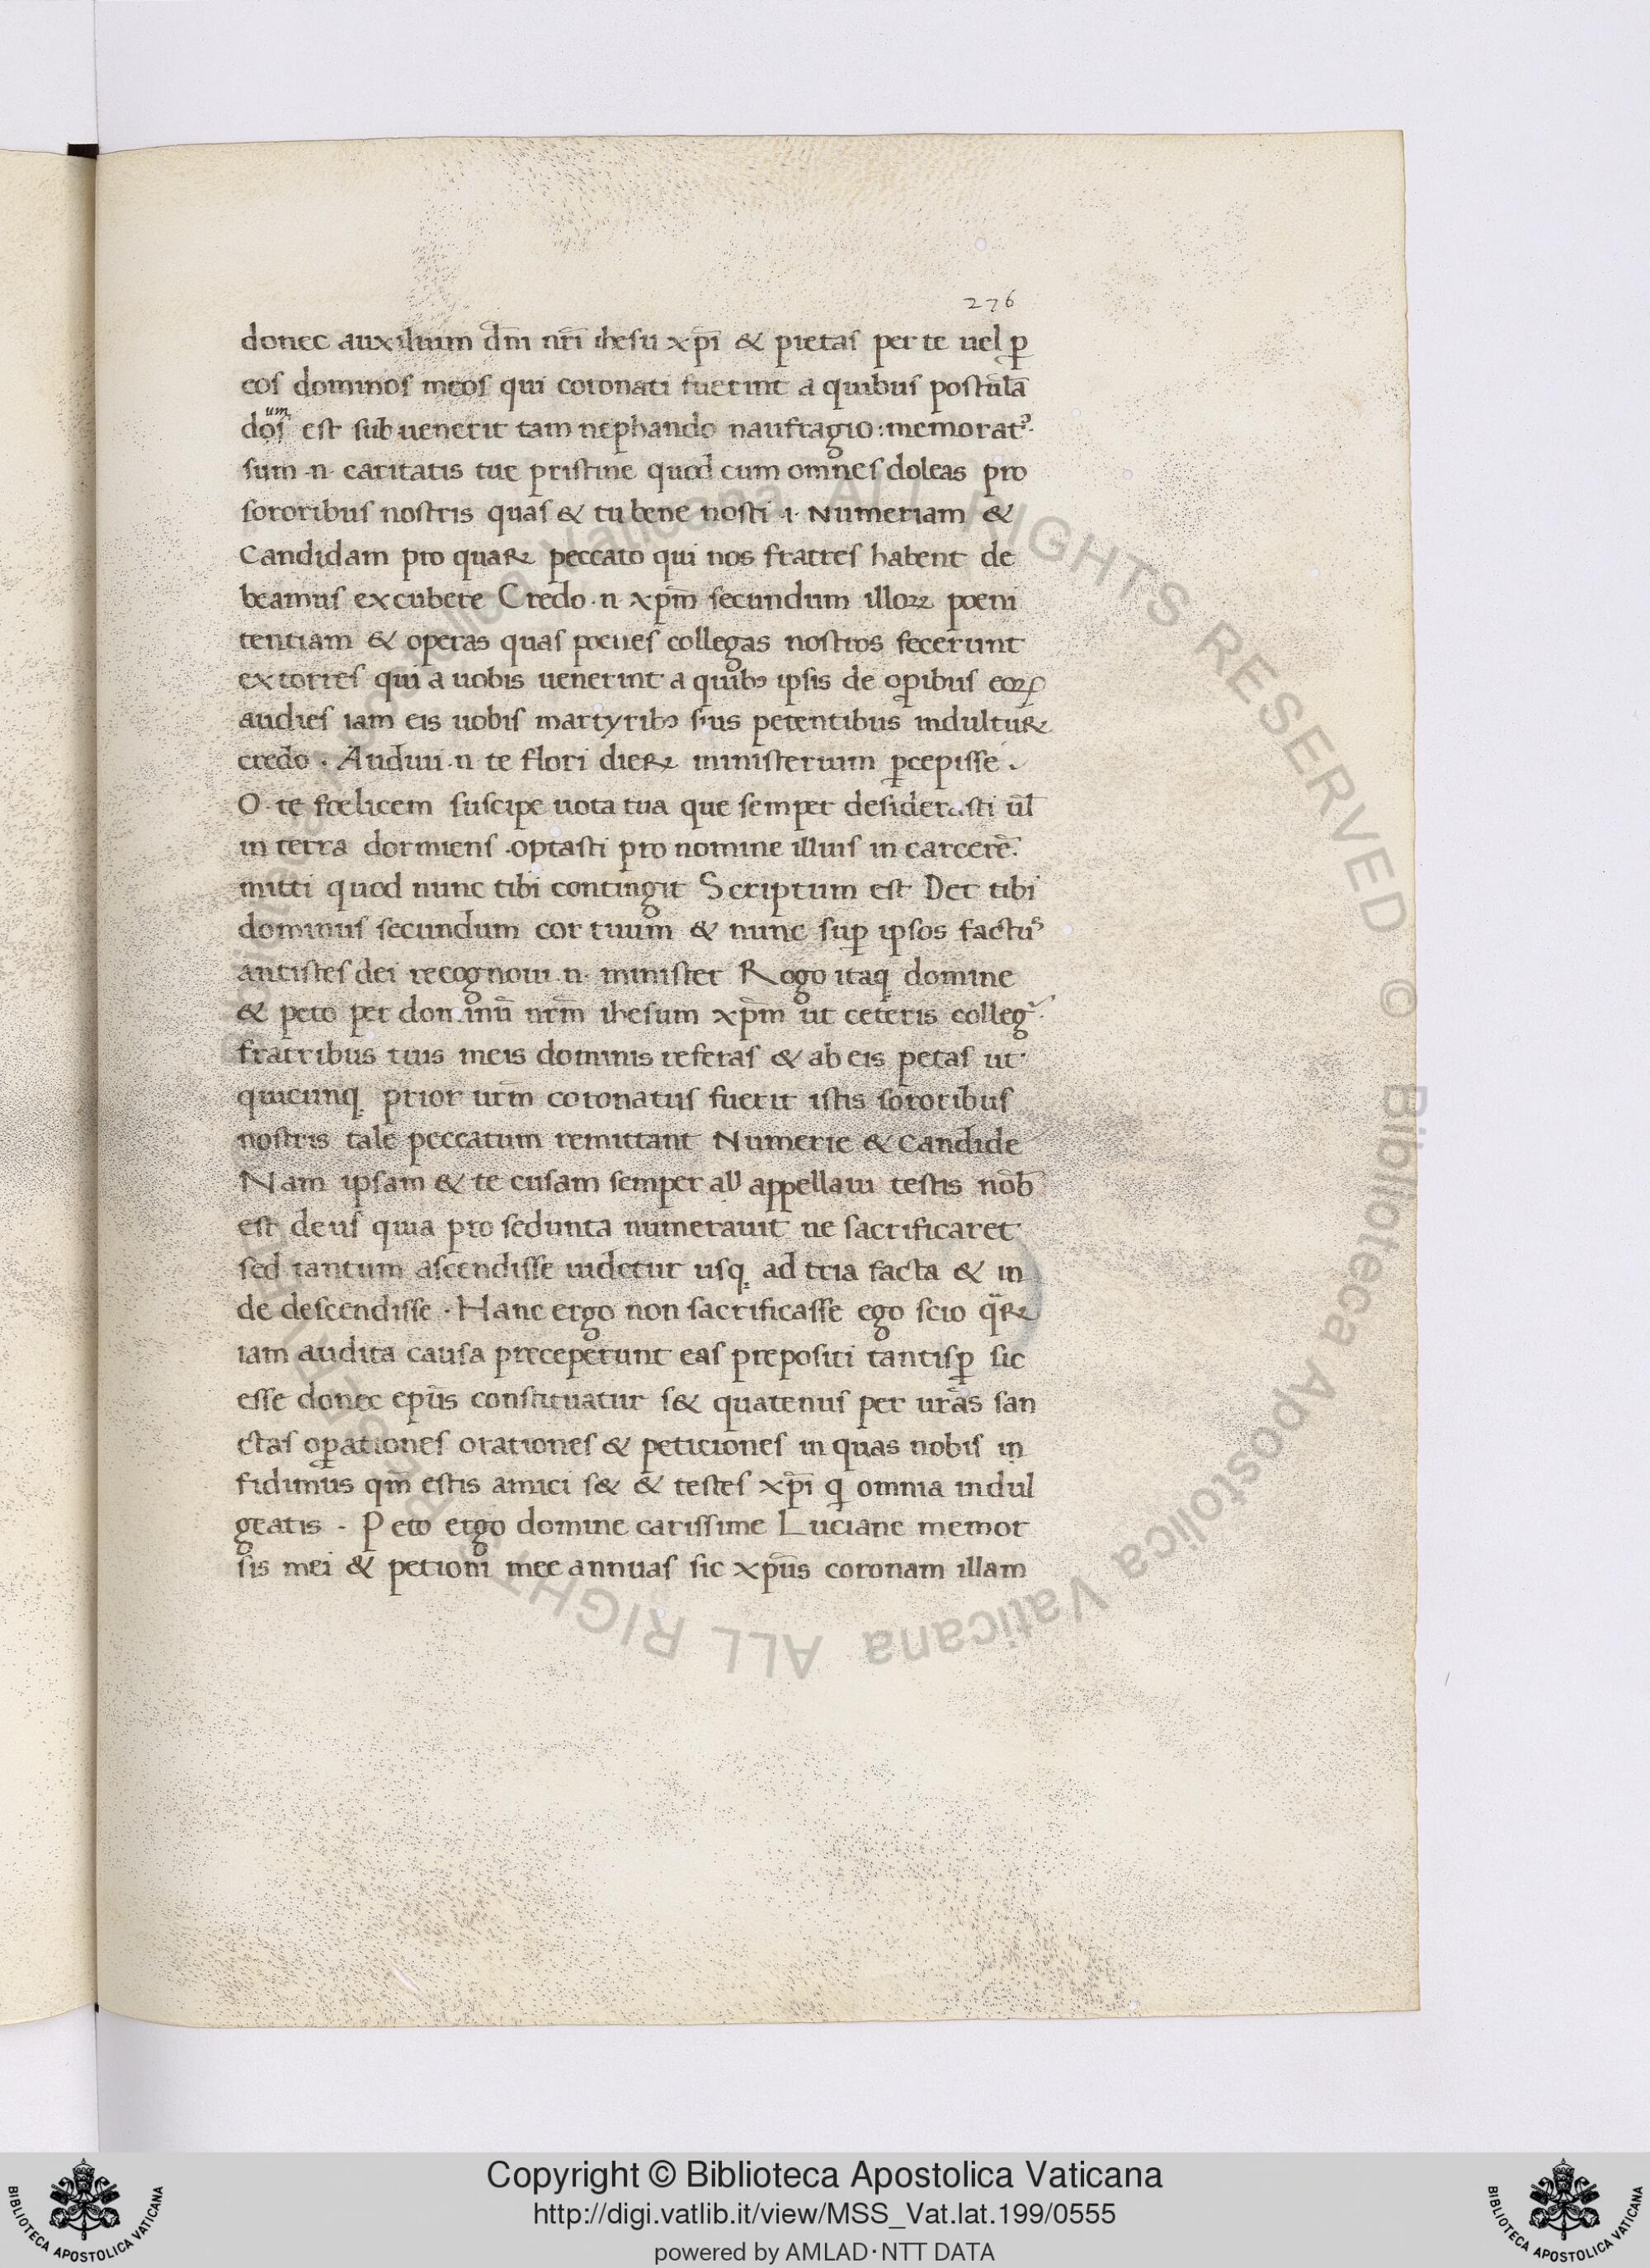 276
donec auxilium dm̄ nr̄i ihesu xp̄i & pietas per te uel ꝑ
eos dominos meos qui coronati fuerint a quibus postulā
um
dos est sub uenerit tam nephando naufragio: memoratꝰ
sum ·n· caritatis tue pristine quod cum omnes doleas pro
sororibus nostris quas & tu bene nosti ·i· Numeriam &
Candidam pro quaꝝ peccato qui nos fratres habent de
beamus excubere Credo ·n xp̄m secundum illoꝝ poeni
tentiam & operas quas poenes collegas nostros fecerunt
extorres qui a uobis uenerint a quibꝰ ipsis de oꝑibus eoꝝ
audies iam eis uobis martyribꝰ suis petentibus indultuꝝ
credo · Audiui ·n te flori dieꝝ ministerium ꝑcepisse ·
O te foelicem suscipe uota tua que semper desiderasti ul̄
in terra dormiens ·optasti pro nomine illius in carcerē·
mitti quod nunc tibi contingit Scriptum est Det tibi
dominus secundum cor tuum & nunc suꝑ ipsos factuꝰ
antistes dei recognoui ·n· minister Rogo itaq; domine
& peto per dominū nr̄m ihesum xp̄m ut ceteris colleg
fratribus tuis meis dominis referas & ab eis petas ut
quicunq; prior ur̄m coronatus fuerit istis sororibus
nostris tale peccatum remittant Numerie & Candide
Nam ipsam & te cusam semper all appellaui testis nob̄
est deus quia pro sedunta numerauit ne sacrificaret
sed tantum ascendisse uidetur usq; ad tria facta & in
de descendisse · Hanc ergo non sacrificasse ego scio q̄ꝝ
iam audita causa preceperunt eas prepositi tantisꝑ sic
esse donec ep̄us constituatur s& quatenus per ur̄as san
ctas oꝑationes orationes & peticiones in quas nobis in
fidimus qm̄ estis amici s& & testes xp̄i q omnia indul
geatis · Peto ergo domine carissime Luciane memor
sis mei & petioni mee annuas sic xp̄us coronam illam
Copyright © Biblioteca Apostolica Vaticana
http://digi.vatlib.it/view/MSS_Vat.lat.199/0555
powered by AMLAD·NTT DATA